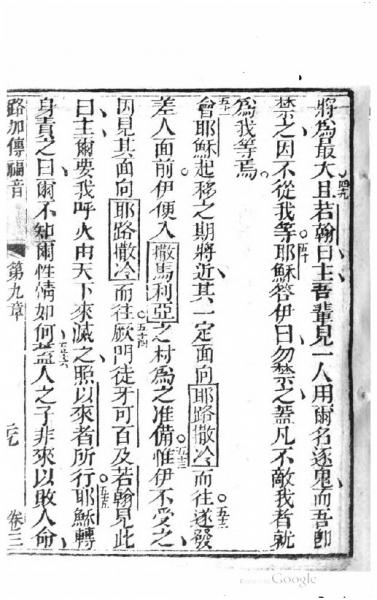 將為最大。四九且若翰曰主吾輩見一人用爾名逐鬼而吾即
禁之因不從我等。五十耶穌答伊曰勿禁之蓋凡不敵我者就
為我等焉。
會耶穌起移之期將近其一定面向耶路撒冷而往。五二遂發
差人面前伊便入撒馬利亞之村為之准備。五三惟伊不受之
因見其面向耶路撒冷而往。五十四厥門徒牙可百及若翰見此
曰主爾要我呼火由天下來滅之照以來者所行。五五耶穌轉
身責之曰爾不知爾性情如何。五十六蓋人之子非來以敗人命
路加傳福音 第九章 卷三
Google